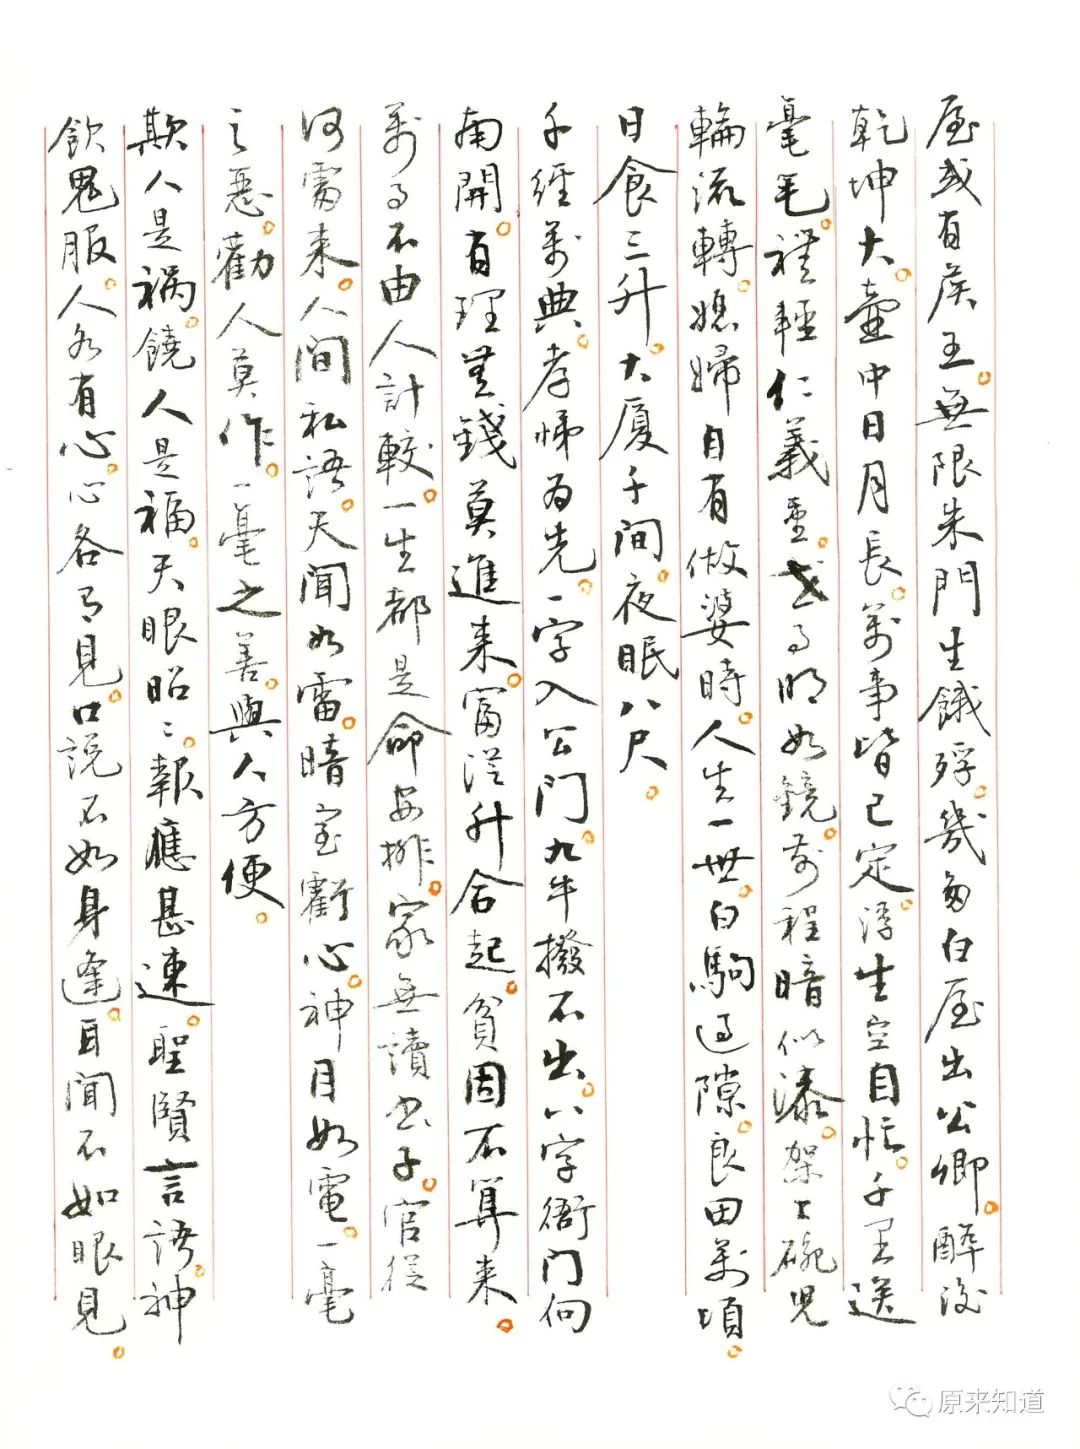 屋或有侯王。無限朱門生餓殍。幾多白屋出公卿。醉後
乾坤大。壺中日月長。萬事皆已定。浮生空自忙。千里送
毫毛。禮輕仁義重。世事明如鏡。前程暗似漆。架上碗兒
輪流轉。媳婦自有做婆時。人生一世。白駒過隙。良田萬頃。
日食三升。大廈千間。夜眠八尺。
千經萬典。孝悌為先。一字入公門。九牛撥不出。八字衙門向
南開。有理無錢莫進來。富從升合起。貧因不算來。
萬事不由人計較。一生都是命安排。家無讀書子。官從
何處來。人間私語。天聞如雷。暗室虧心。神目如電。一毫
之惡。勸人莫作。一毫之善。與人方便。
欺人是禍。饒人是福。天眼昭昭。報應甚速。聖賢言語。神
欽鬼服。人各有心。心各有見。口說不如身逢。耳聞不如眼見。
原来知道